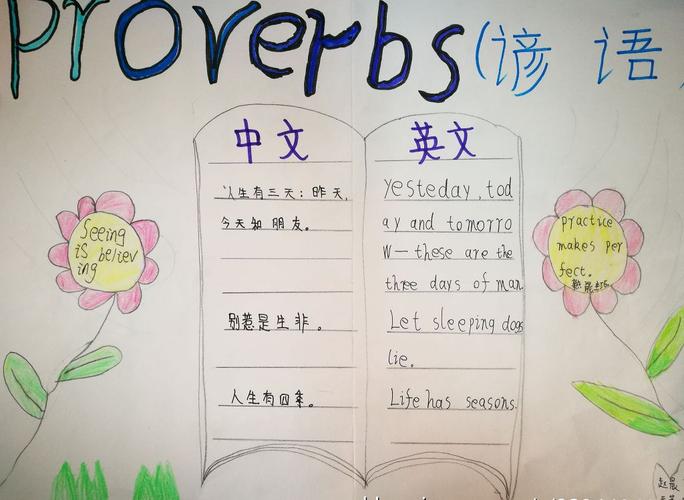 Proverbs(谚语)
中文
人生有三天: 昨天,
今天和 朋友。
别惹是生非。
人生有四季。
英文
Yesteday, tod
ay and tomorro
w— these are the
three days of man
Let sleeping dogs
lie.
Life has seasons.
Seeing
is believ
ing
Practice
makes per
fect.
熟能生巧